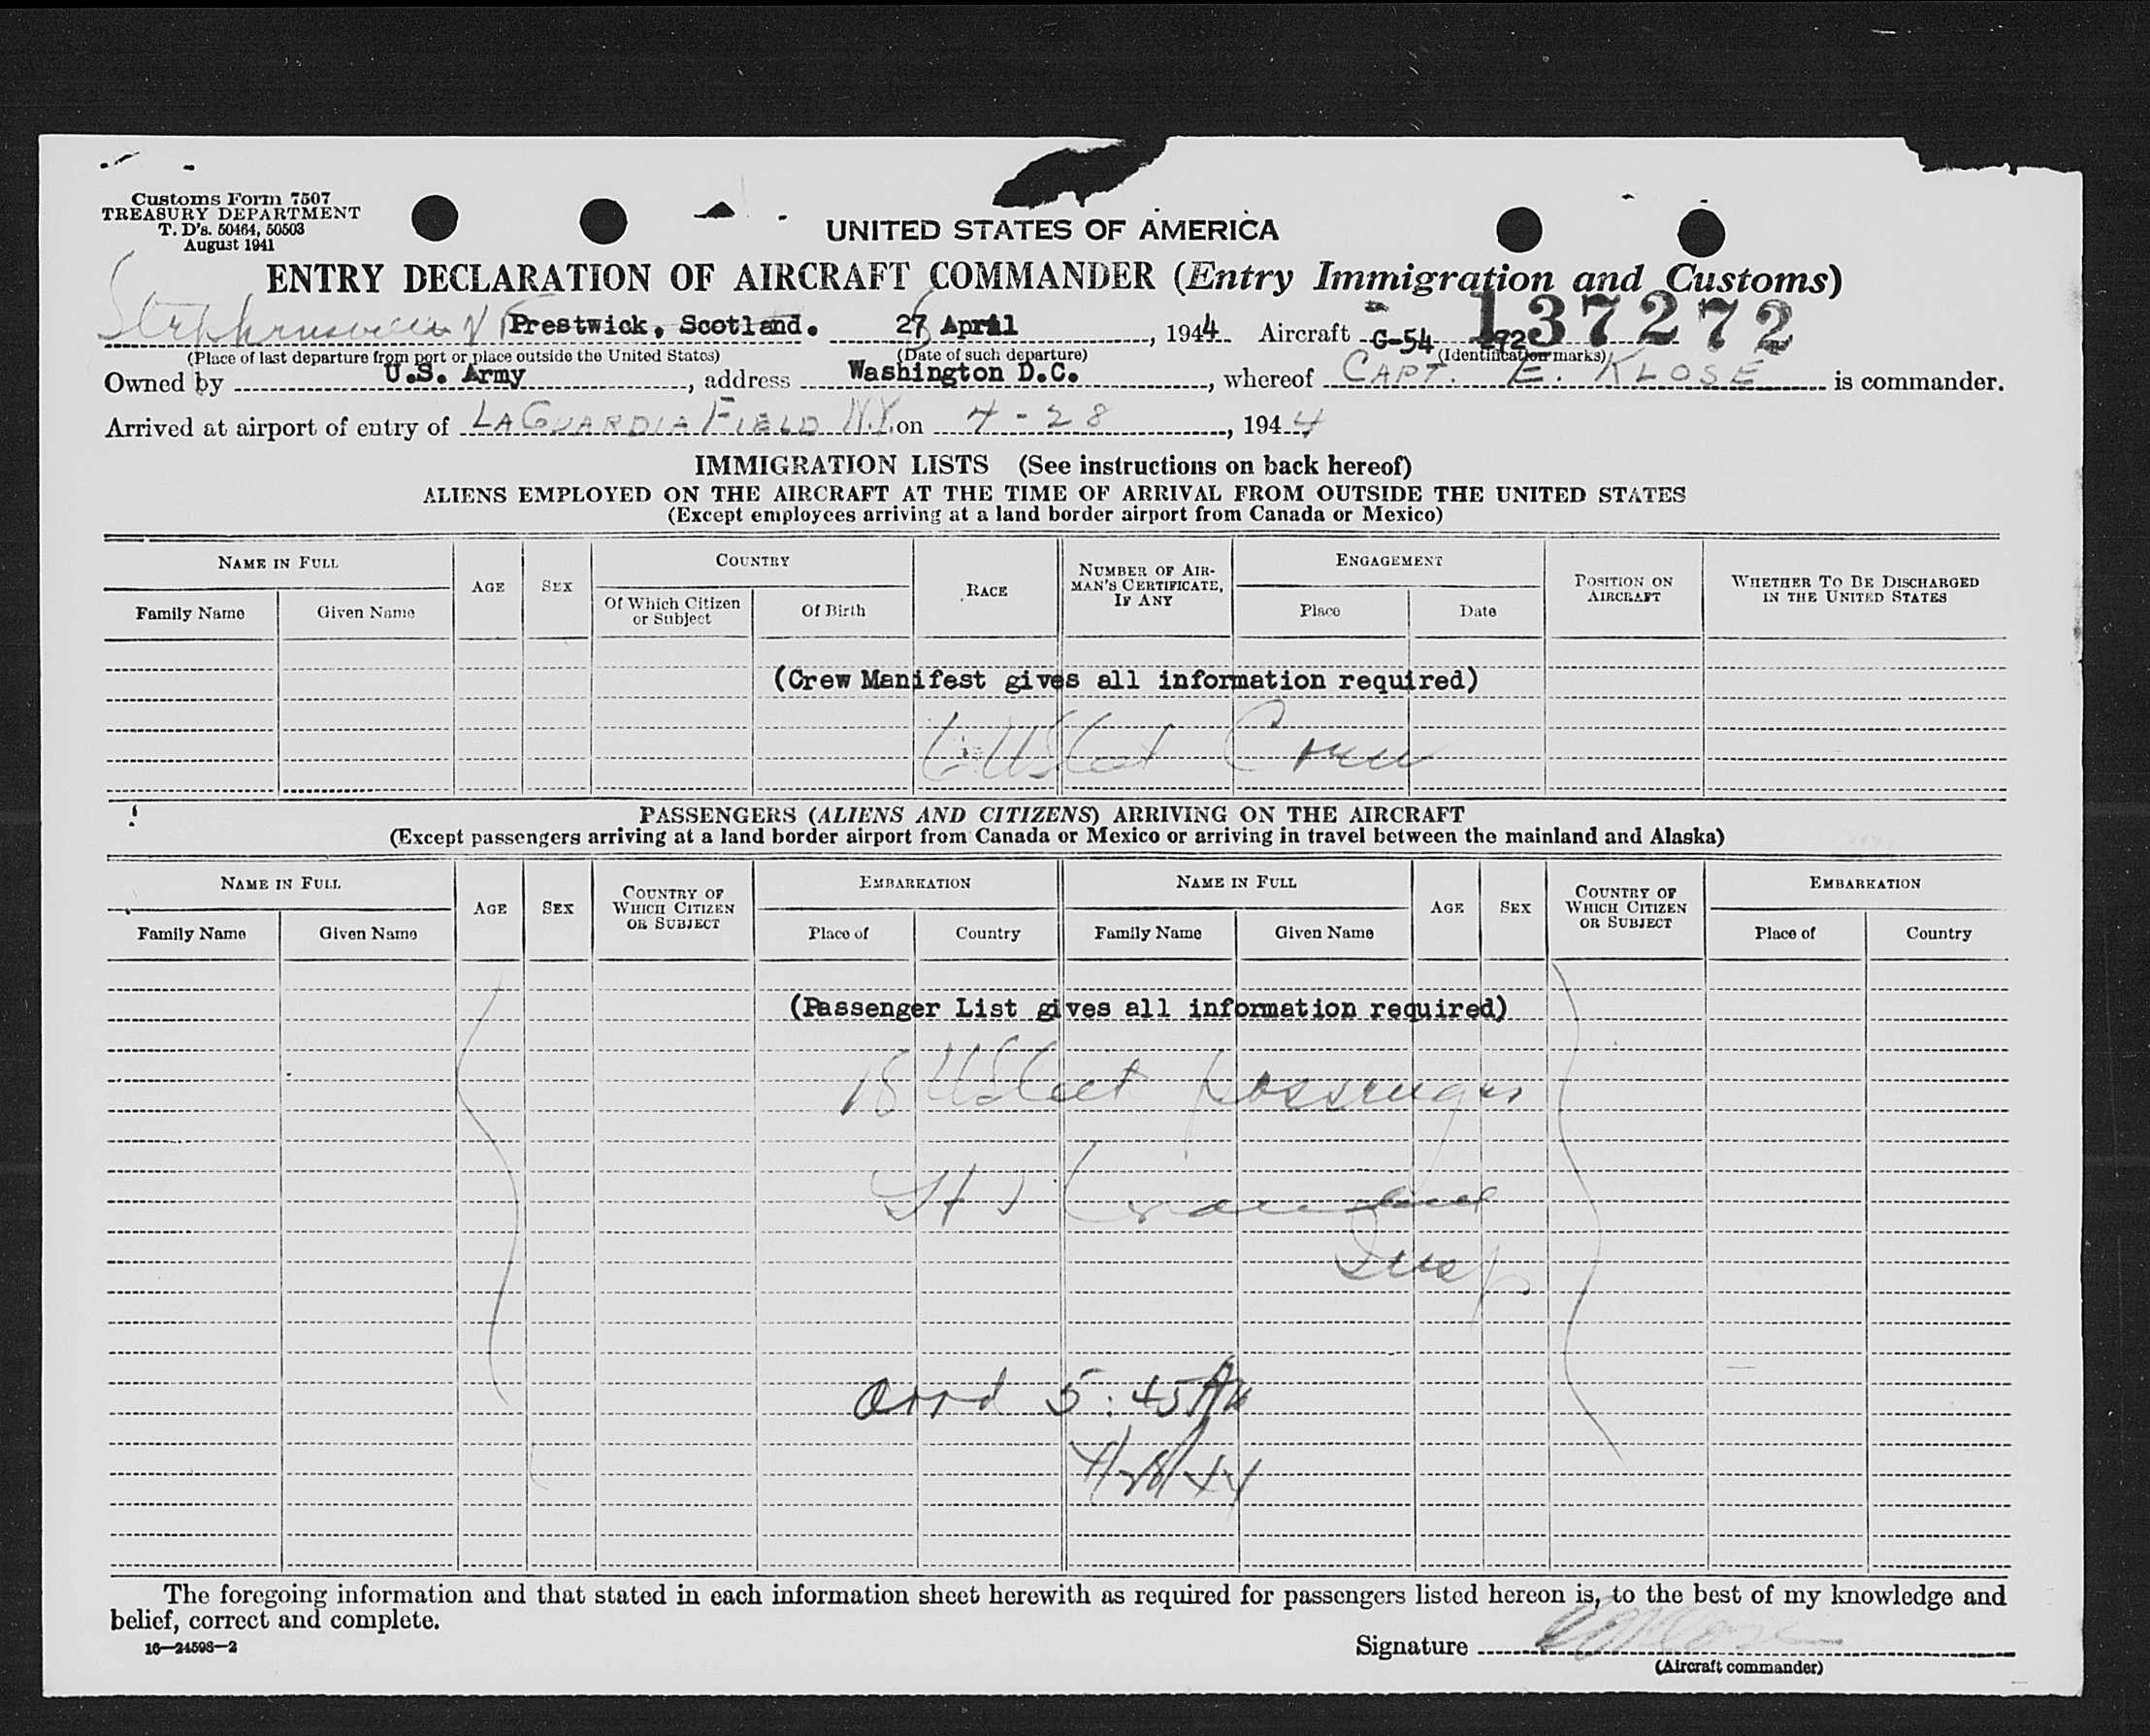 Customs Form 7507
TREASURY DEPARTMENT
T. D's. 50464, 50503
August 1941
UNITED STATES OF AMERICA
ENTRY DECLARATION OF AIRCRAFT COMMANDER (Entry Immigration and Customs)
137272
Prestwick, Scotland. April, 1944 Aircraft G-54 272
(Place of last departure from port or place outside the United States) (Date of such departure) (Identification marks)
Owned by U.S. Army, address Washington D.C., whereof CAPT. E. KLOSE is commander.
Arrived at airport of entry of LAGUARDIA FIELD N.Y. on 4-28, 1944
IMMIGRATION LISTS (See instructions on back hereof)
ALIENS EMPLOYED ON THE AIRCRAFT AT THE TIME OF ARRIVAL FROM OUTSIDE THE UNITED STATES
(Except employees arriving at a land border airport from Canada or Mexico)
NAME IN FULL AGE SEX COUNTRY RACE NUMBER OF AIRMAN'S CERTIFICATE, IF ANY ENGAGEMENT POSITION ON AIRCRAFT WHETHER TO BE DISCHARGED IN THE UNITED STATES
Family Name Given Name Of Which Citizen or Subject Of Birth Place Date
(Crew Manifest gives all information required)
6 US Cit Crew
PASSENGERS (ALIENS AND CITIZENS) ARRIVING ON THE AIRCRAFT
(Except passengers arriving at a land border airport from Canada or Mexico or arriving in travel between the mainland and Alaska)
NAME IN FULL AGE SEX COUNTRY OF WHICH CITIZEN OR SUBJECT EMBARKATION NAME IN FULL AGE SEX COUNTRY OF WHICH CITIZEN OR SUBJECT EMBARKATION
Family Name Given Name Place of Country Family Name Given Name Place of Country
(Passenger List gives all information required)
18 US Cit passengers
Insp
arrd 5:45 AM
4/28/44
The foregoing information and that stated in each information sheet herewith as required for passengers listed hereon is, to the best of my knowledge and
belief, correct and complete.
16—24598-2
Signature
(Aircraft commander)